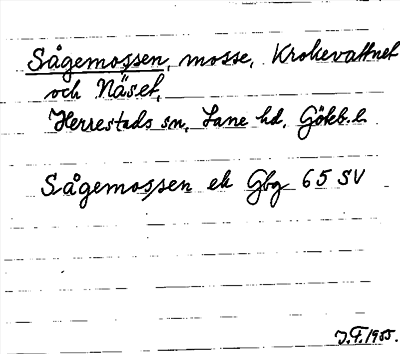 Sågemossen, mosse, Krokevattnet
och Näset,
Herrestads sn, Lane hd, Göteb. l.
Sågemossen ek Gbg 65 SV
J.F. 1955.